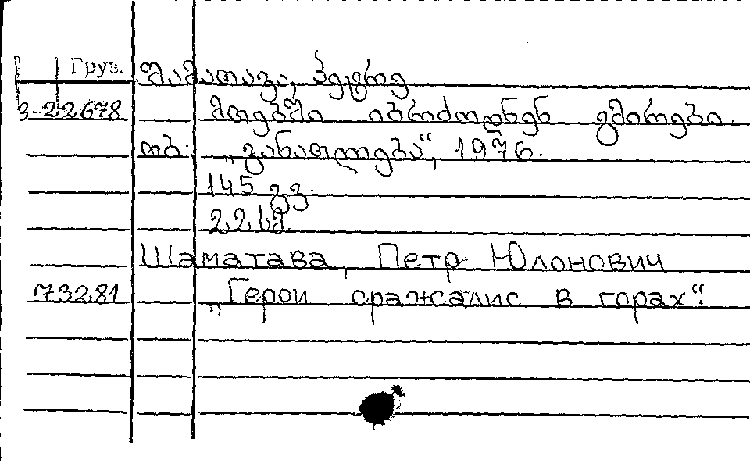 Груз. შამათავა, პეტრე
3-22678 მთებში იბრძოდნენ გმირები.
თბ. „განათლება“, 1976.
145 გვ.
22 კპ.
Шаматава, Петр Юлонович
73281 „Герои сражалис в горах“.